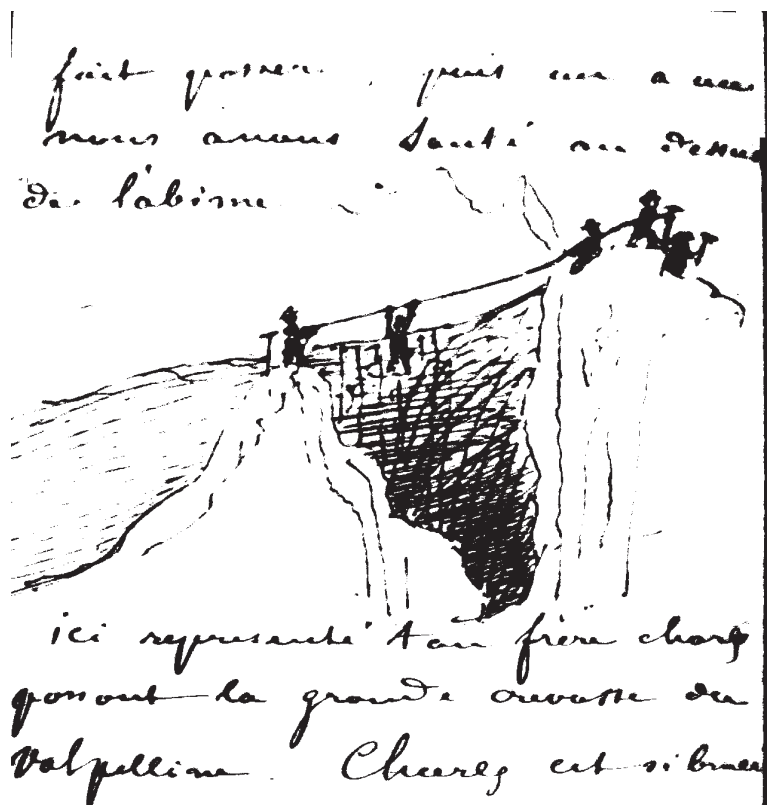 fait passer. puis un a un
nous avons sauté au dessus
de l'abime
ici representé ton frère charles
passant la grande crevasse du
Valpelline. Charles est si